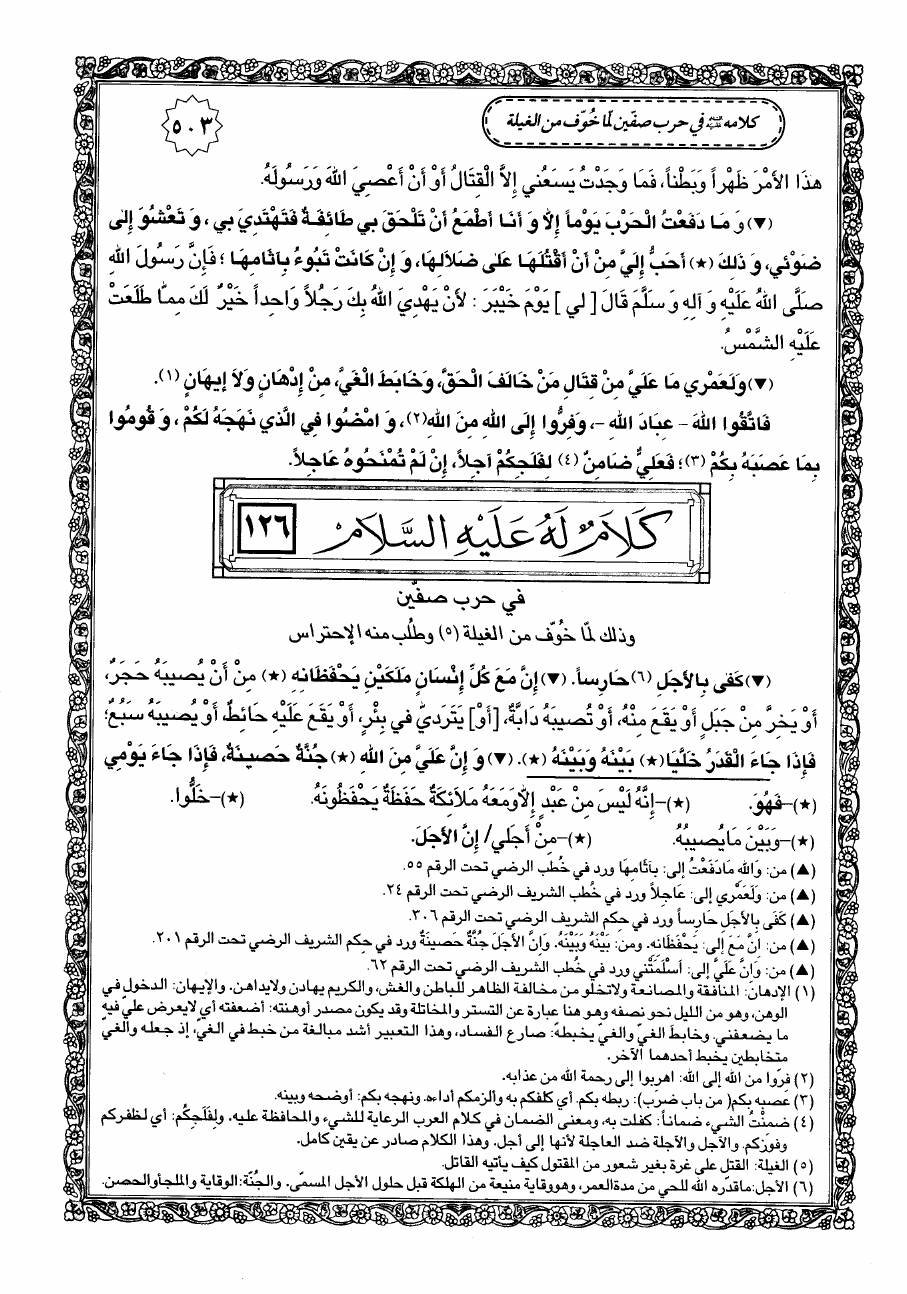 كلامه عليه السلام في حرب صفّين لمّا خُوّف من الغيلة
٥٠٣
هذَا الأَمْرَ ظَهْراً وَبَطْناً، فَمَا وَجَدْتُ يَسَعُني إِلاَّ الْقِتَالُ أَوْ أَنْ أَعْصِيَ اللهَ وَرَسُولَهُ.
(▼) وَ مَا دَفَعْتُ الْحَرْبَ يَوْماً إِلاَّ وَ أَنَا أَطْمَعُ أَنْ تَلْحَقَ بي طَائِفَةٌ فَتَهْتَدِيَ بي، وَ تَعْشُوَ إِلى
ضَوْئي، وَ ذَلِكَ (★) أَحَبُّ إِلَيَّ مِنْ أَنْ أَقْتُلَهَا عَلى ضَلاَلِهَا، وَ إِنْ كَانَتْ تَبُوءُ بِآثَامِهَا؛ فَإِنَّ رَسُولَ اللهِ
صَلَّى اللهُ عَلَيْهِ وَ آلِهِ وَ سَلَّمَ قَالَ [ لي ] يَوْمَ خَيْبَرَ : لأَنْ يَهْدِيَ اللهُ بِكَ رَجُلاً وَاحِداً خَيْرٌ لَكَ مِمَّا طَلَعَتْ
عَلَيْهِ الشَّمْسُ.
(▼) وَلَعَمْري مَا عَلَيَّ مِنْ قِتَالِ مَنْ خَالَفَ الْحَقَّ، وَخَابَطَ الْغَيَّ، مِنْ إِدْهَانٍ وَلاَ إيهَانٍ (١).
فَاتَّقُوا اللهَ - عِبَادَ اللهِ -، وَفِرُّوا إِلَى اللهِ مِنَ اللهِ(٢)، وَ امْضُوا فِي الَّذي نَهَجَهُ لَكُمْ، وَ قُومُوا
بِمَا عَصَبَهُ بِكُمْ (٣)؛ فَعَلِيٌّ ضَامِنٌ (٤) لِفَلَجِكُمْ آجِلاً، إِنْ لَمْ تُمْنَحُوهُ عَاجِلاً.
كَلَامٌ لَهُ عَلَيْهِ السَّلَامُ ١٢٦
في حرب صفّين
وذلك لمّا خُوّف من الغيلة (٥) وطُلب منه الإحتراس
(▼) كَفى بِالأَجَلِ (٦) حَارِساً. (▼) إِنَّ مَعَ كُلِّ إِنْسَانٍ مَلَكَيْنِ يَحْفَظَانِهِ (★) مِنْ أَنْ يُصيبَهُ حَجَرٌ،
أَوْ يَخِرَّ مِنْ جَبَلٍ أَوْ يَقَعَ مِنْهُ، أَوْ تُصيبَهُ دَابَّةٌ، [أَوْ] يَتَرَدّى في بِئْرٍ، أَوْ يَقَعَ عَلَيْهِ حَائِطٌ، أَوْ يُصيبَهُ سَبُعٌ؛
فَإِذَا جَاءَ الْقَدَرُ خَلَّيَا(★) بَيْنَهُ وَبَيْنَهُ (★). (▼) وَ إِنَّ عَلَيَّ مِنَ اللهِ (★) جُنَّةً حَصينَةً، فَإِذَا جَاءَ يَوْمي
(★)-فَهُوَ. (★)-إِنَّهُ لَيْسَ مِنْ عَبْدٍ إِلاَّ وَمَعَهُ مَلاَئِكَةٌ حَفَظَةٌ يَحْفَظُونَهُ. (★)-خَلُّوا.
(★)-وَبَيْنَ مَا يُصيبُهُ. (★)-مِنْ أَجَلي/ إِنَّ الأَجَلَ.
(▲) من: وَاللهِ مَا دَفَعْتُ إلى: بِآثَامِهَا ورد في خُطب الرضي تحت الرقم ٥٥.
(▲) من: وَلَعَمْري إلى: عَاجِلاً ورد في خُطب الشريف الرضي تحت الرقم ٢٤.
(▲) كَفى بِالأَجَلِ حَارِساً ورد في حِكم الشريف الرضي تحت الرقم ٣٠٦.
(▲) من: إِنَّ مَعَ إلى: يَحْفَظَانِهِ. ومن: بَيْنَهُ وَبَيْنَهُ. وَإِنَّ الأَجَلَ جُنَّةٌ حَصينَةٌ ورد في حِكم الشريف الرضي تحت الرقم ٢٠١.
(▲) من: وَإِنَّ عَلَيَّ إلى: أَسْلَمَتْني ورد في خُطب الشريف الرضي تحت الرقم ٦٢.
(١) الإدهان: المنافقة والمصانعة ولا تخلو من مخالفة الظاهر للباطن والغش، والكريم يهادن ولا يداهن. والإيهان: الدخول في
الوهن، وهو من الليل نحو نصفه وهو هنا عبارة عن التستر والمخاتلة وقد يكون مصدر أوهنته: أضعفته أي لا يعرض عليّ فيه
ما يضعفني. وخابطَ الغيّ والغيّ يخبطه: صارع الفساد، وهذا التعبير أشد مبالغة من خبط في الغيّ، إذ جعله والغي
متخابطين يخبط أحدهما الآخر.
(٢) فرّوا من الله إلى الله: اهربوا إلى رحمة الله من عذابه.
(٣) عصبه بكم( من باب ضرَب): ربطه بكم. أي كلفكم به وألزمكم أداءه. ونهجه بكم: أوضحه وبينه.
(٤) ضمنْتُ الشيء ضماناً: كفلت به، ومعنى الضمان في كلام العرب الرعاية للشيء والمحافظة عليه. ولِفَلَجِكُم: أي لظفركم
وفوزكم. والأجل والآجلة ضد العاجلة لأنها إلى أجل. وهذا الكلام صادر عن يقين كامل.
(٥) الغيلة: القتل على غرة بغير شعور من المقتول كيف يأتيه القاتل.
(٦) الأجل:ما قدّره الله للحي من مدة العمر، وهو وقاية منيعة من الهلكة قبل حلول الأجل المسمّى. والجُنّة: الوقاية والملجأ والحصن.